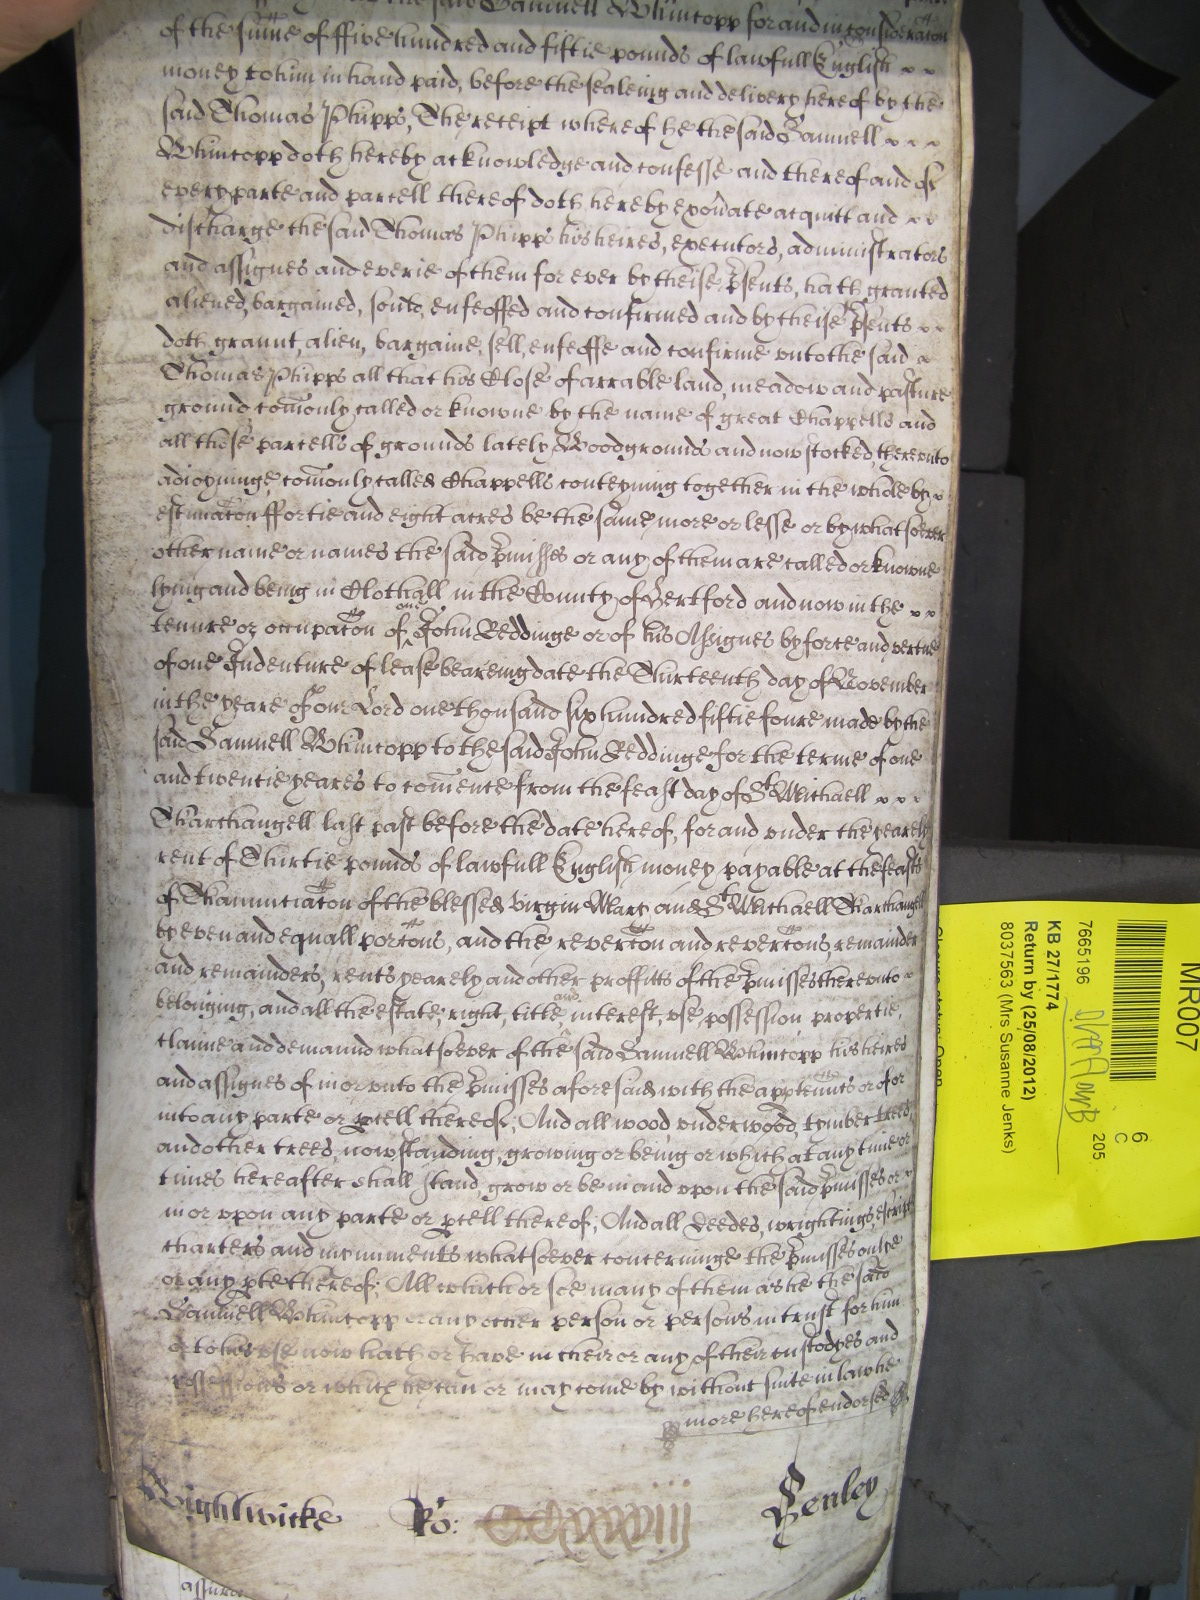 the said Samuell Whintopp for and in consideracon
of the sume of ffive hundred and fiftie pounds of lawfull English
money to him in hand paid, before the sealeing and delivery hereof by the
said Thomas Phipps, The receipt whereof he the said Samuell
Whintopp doth hereby acknowledge and confesse and thereof and of
every parte and parcell thereof doth hereby exonate acquitt and
discharge the said Thomas Phipps his heires, executors, administrators
and assignes and everie of them for ever by theise psents, hath granted
aliened, bargained, sould, enfeoffed and confirmed and by theise psents
doth graunt, alien, bargaine, sell, enfeoffe and confirme unto the said
Thomas Phipps all that his Close of arrable land, meadow and pasture
ground comonly called or knowne by the name of great Chappells and
all those parcells of grounds lately Woodgrounds and now stocked, thereunto
adioyninge, comonly called Chappells conteyning together in the whole by
estimacon ffortie and eight acres be the same more or lesse or by what soever
other name or names the said pmisses or any of them are called or knowne
lying and being in Clothall in the County of Hertford and now in the
tenure or occupacon of one John Reddinge or of his Assignes by force and vertue
of one Indenture of lease beareing date the Thirteenth day of November
in the yeare of our Lord one thousand six hundred fiftie foure made by the
said Samuell Whintopp to the said John Reddinge for the terme of one
and twentie yeares to comence from the feast day of St Michaell
Tharchangell last past before the date hereof, for and under the yearely
rent of Thirtie pounds of lawfull English money payable at the feasts
of Thannunciacon of the blessed virgin Mary and St Michaell Tharchangell
by even and equall porcons, and the revercon and revercons, remainder
and remainders, rents yearely and other proffitts of the pmisses thereunto
belonging, and all the estate, right, title, and interest, use, possession, propertie,
claime and demaund whatsoever of the said Samuell Whintopp his heires
and assignes of in or unto the pmisses aforesaid with the apptenncs or of or
into any parte or pcell thereof, And all wood underwood, tymber trees,
and other trees, now standing, growing or being or which at any time or
times hereafter shall stand, grow or be in and upon the said pmisses or
in or upon any parte or pcell thereof; And all deedes, wrightings, escripts
charters and minuments whatsoever concerninge the pmisses onlye
or any pte thereof; All which or soe many of them as he the said
Samuell Whintopp or any other person or persons in trust for him
or to his use now hath or have in their or any of their custodyes and
possessions or which he can or may come by without suite in law he
more hereof endorsed
Wightwicke Ro: CCxxxiiij Henley
assura
MR007
7665196
KB 27/1774
Return by (25/08/2012)
8037563 (Mrs Susanne Jenks)
6
C
205
Closure status: Open